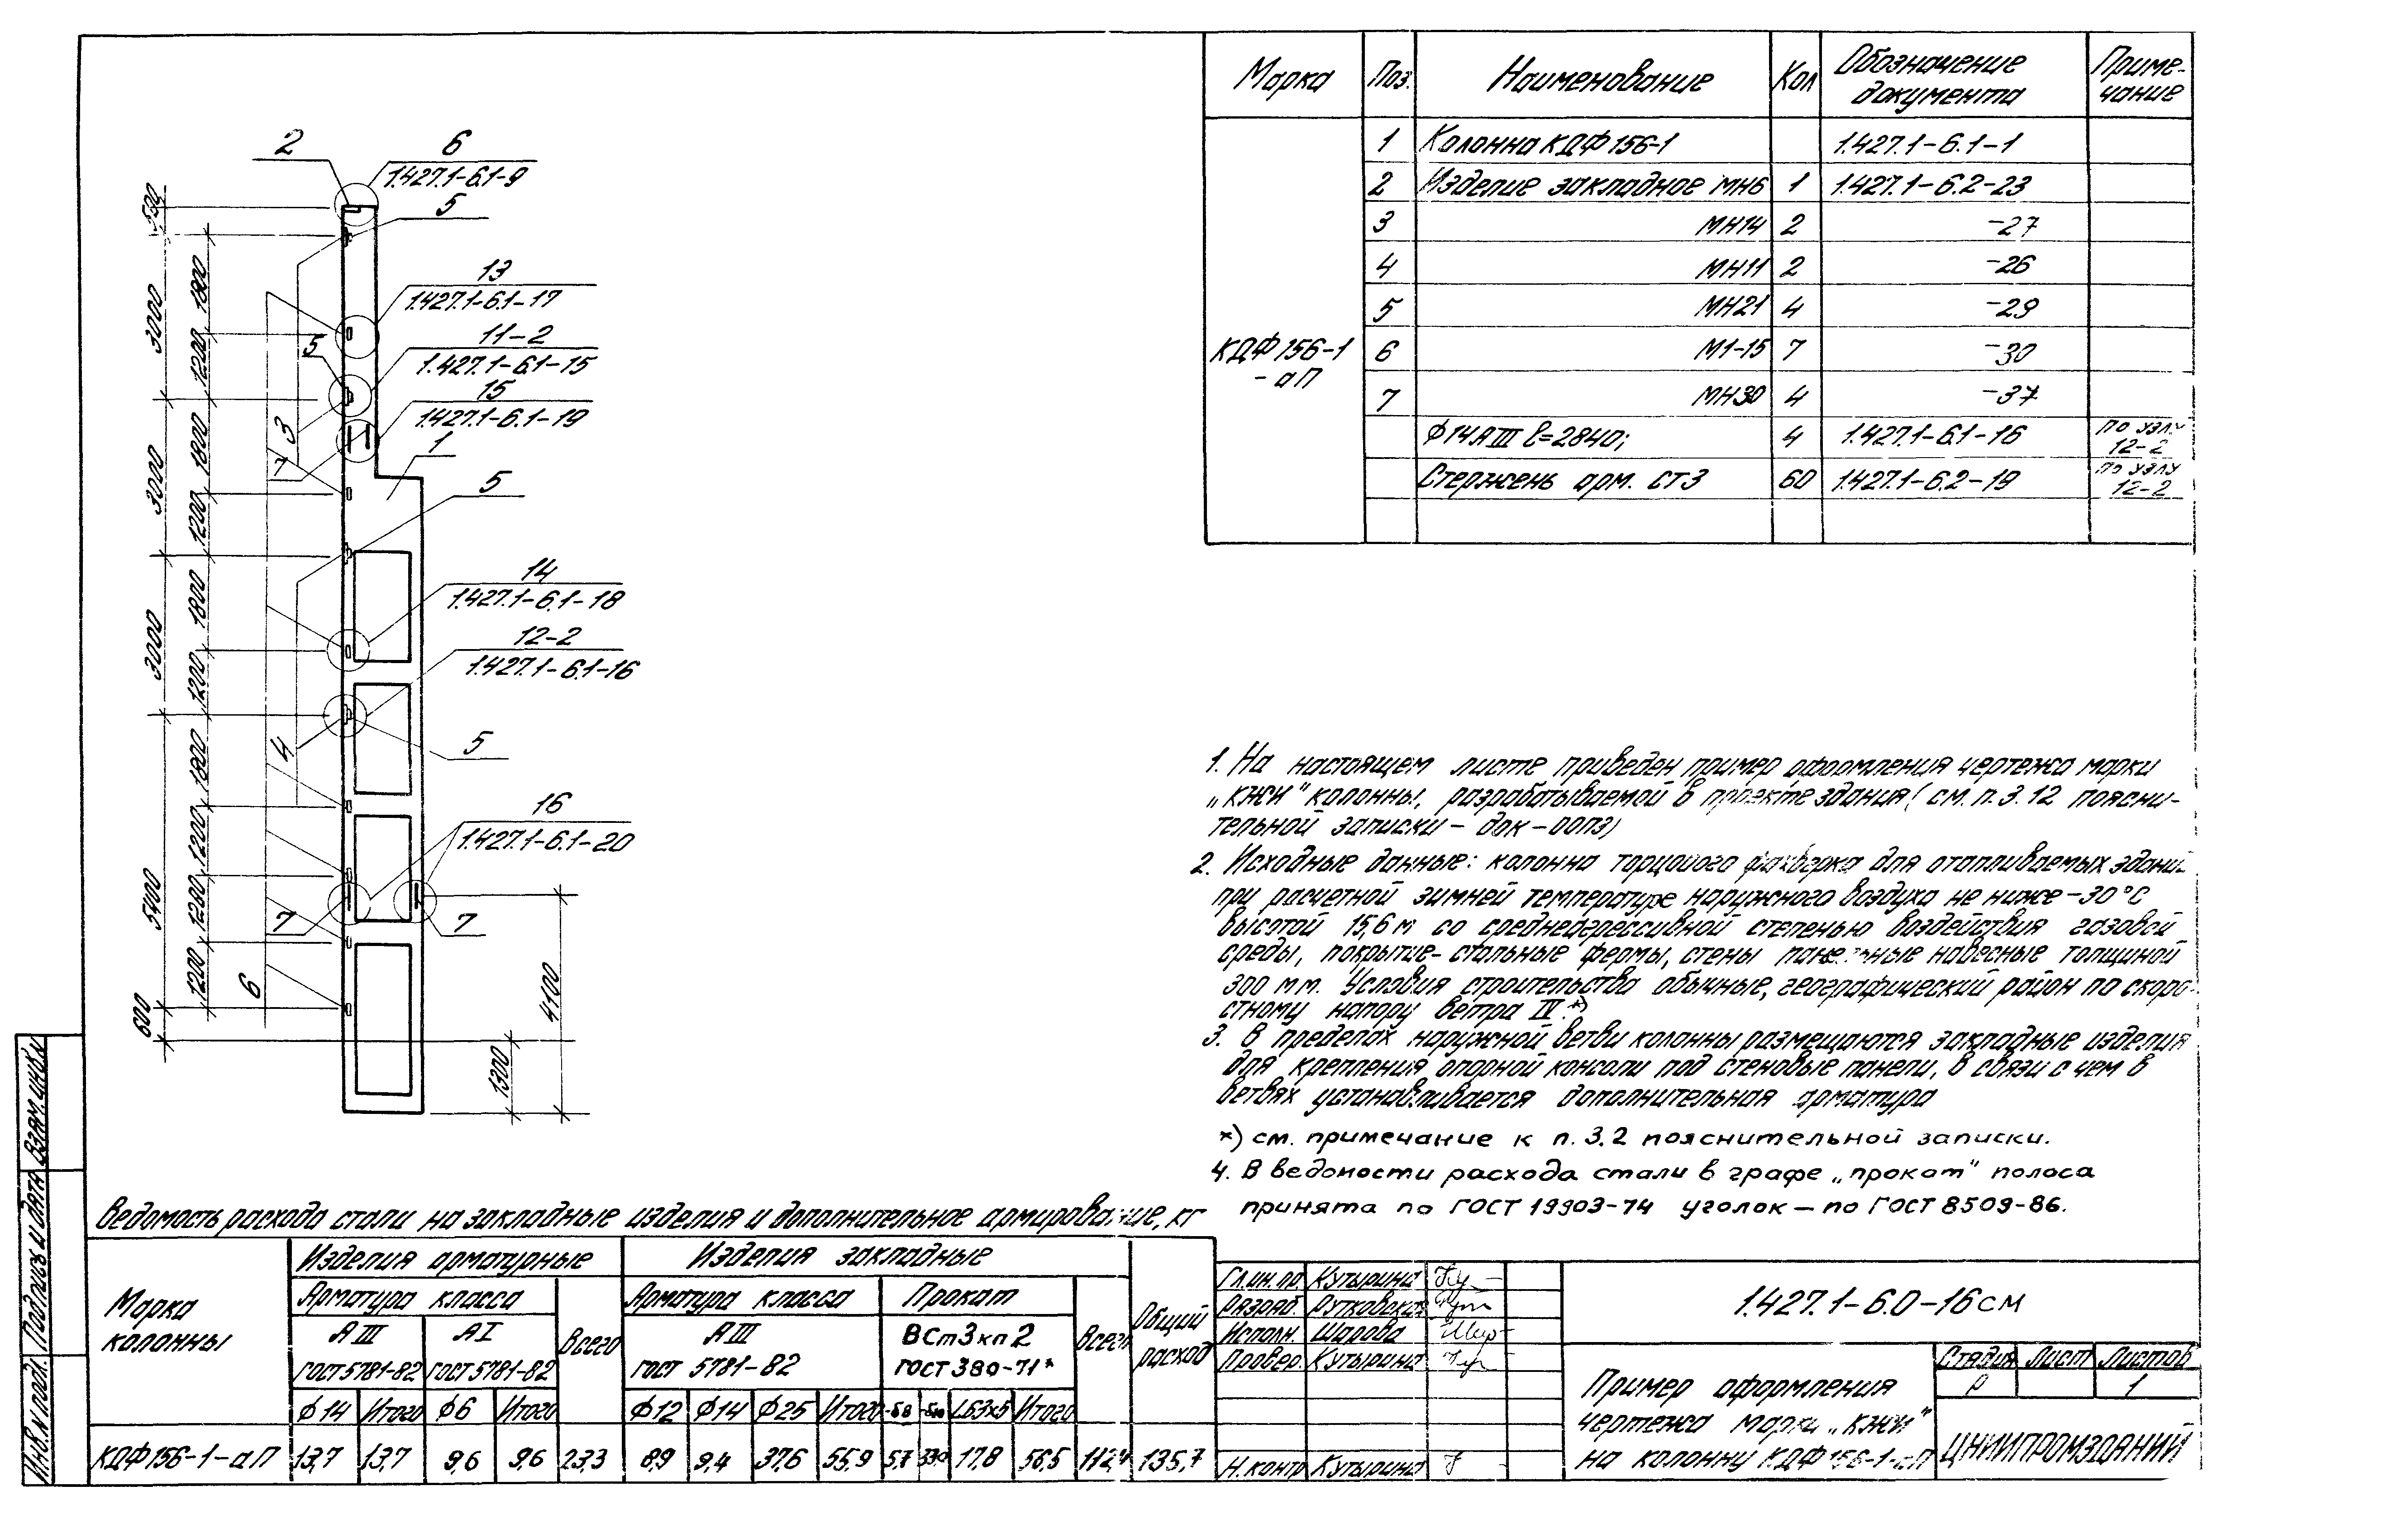 2
6
1.427.1-6.1-9
5
13
1.427.1-6.1-17
11-2
1.427.1-6.1-15
5
15
1.427.1-6.1-19
1
3
7
5
14
1.427.1-6.1-18
12-2
1.427.1-6.1-16
4
5
16
1.427.1-6.1-20
7
7
6
3000
1800
1200
3000
1800
1200
3000
1800
1200
5400
1800
1200
1200
1200
600
4100
1300
Марка Поз. Наименование Кол Обозначение документа Приме-чание
КДФ156-1
-аП
1 Колонна КДФ156-1 1.427.1-6.1-1
2 Изделие закладное МН6 1 1.427.1-6.2-23
3 МН14 2 -27
4 МН11 2 -26
5 МН21 4 -29
6 М1-15 7 -30
7 МН30 4 -37
Ф14АIII ℓ=2840; 4 1.427.1-6.1-16 по узлу 12-2
Стержень арм. СТ3 60 1.427.1-6.2-19 по узлу 12-2
1. На настоящем листе приведен пример оформления чертежа марки
„КЖИ" колонны, разрабатываемой в проекте здания (см. п. 3.12 поясни-
тельной записки - док -00ПЗ)
2. Исходные данные: колонна торцового фахверка для отапливаемых зданий
при расчетной зимней температуре наружного воздуха не ниже -30°С
высотой 15,6 м со среднеагрессивной степенью воздействия газовой
среды, покрытие- стальные фермы, стены панельные навесные толщиной
300 мм. Условия строительства обычные, географический район по скоро-
стному напору ветра IV.*)
3. В пределах наружной ветви колонны размещаются закладные изделия
для крепления опорной консоли под стеновые панели, в связи с чем в
ветвях устанавливается дополнительная арматура
*) см. примечание к п. 3.2 пояснительной записки.
4. В ведомости расхода стали в графе „прокат" полоса
принята по ГОСТ 19903-74 уголок - по ГОСТ 8509-86.
Ведомость расхода стали на закладные изделия и дополнительное армирование, кг
Марка колонны Изделия арматурные Изделия закладные Общий расход
Арматура класса Всего Арматура класса Прокат Всего
АIII АI АIII ВСт3кп2
ГОСТ 5781-82 ГОСТ 5781-82 ГОСТ 5781-82 ГОСТ 380-71*
Ф14 Итого Ф6 Итого Ф12 Ф14 Ф25 Итого -δ8 L63х5 Итого
КДФ156-1-аП 13,7 13,7 9,6 9,6 23,3 8,9 9,4 37,6 55,9 5,7 17,8 56,5 112,4 135,7
Гл.ин.пр. Кутырина
Разраб. Рутковская
Исполн. Шарова
Провер. Кутырина
Н.контр Кутырина
1.427.1-6.0-16СМ
Пример оформления
чертежа марки „КЖИ"
на колонну КДФ156-1-аП
Стадия Лист Листов
Р 1
ЦНИИПРОМЗДАНИЙ
Взам.инв.№
Подпись и дата
Инв.№ подл.